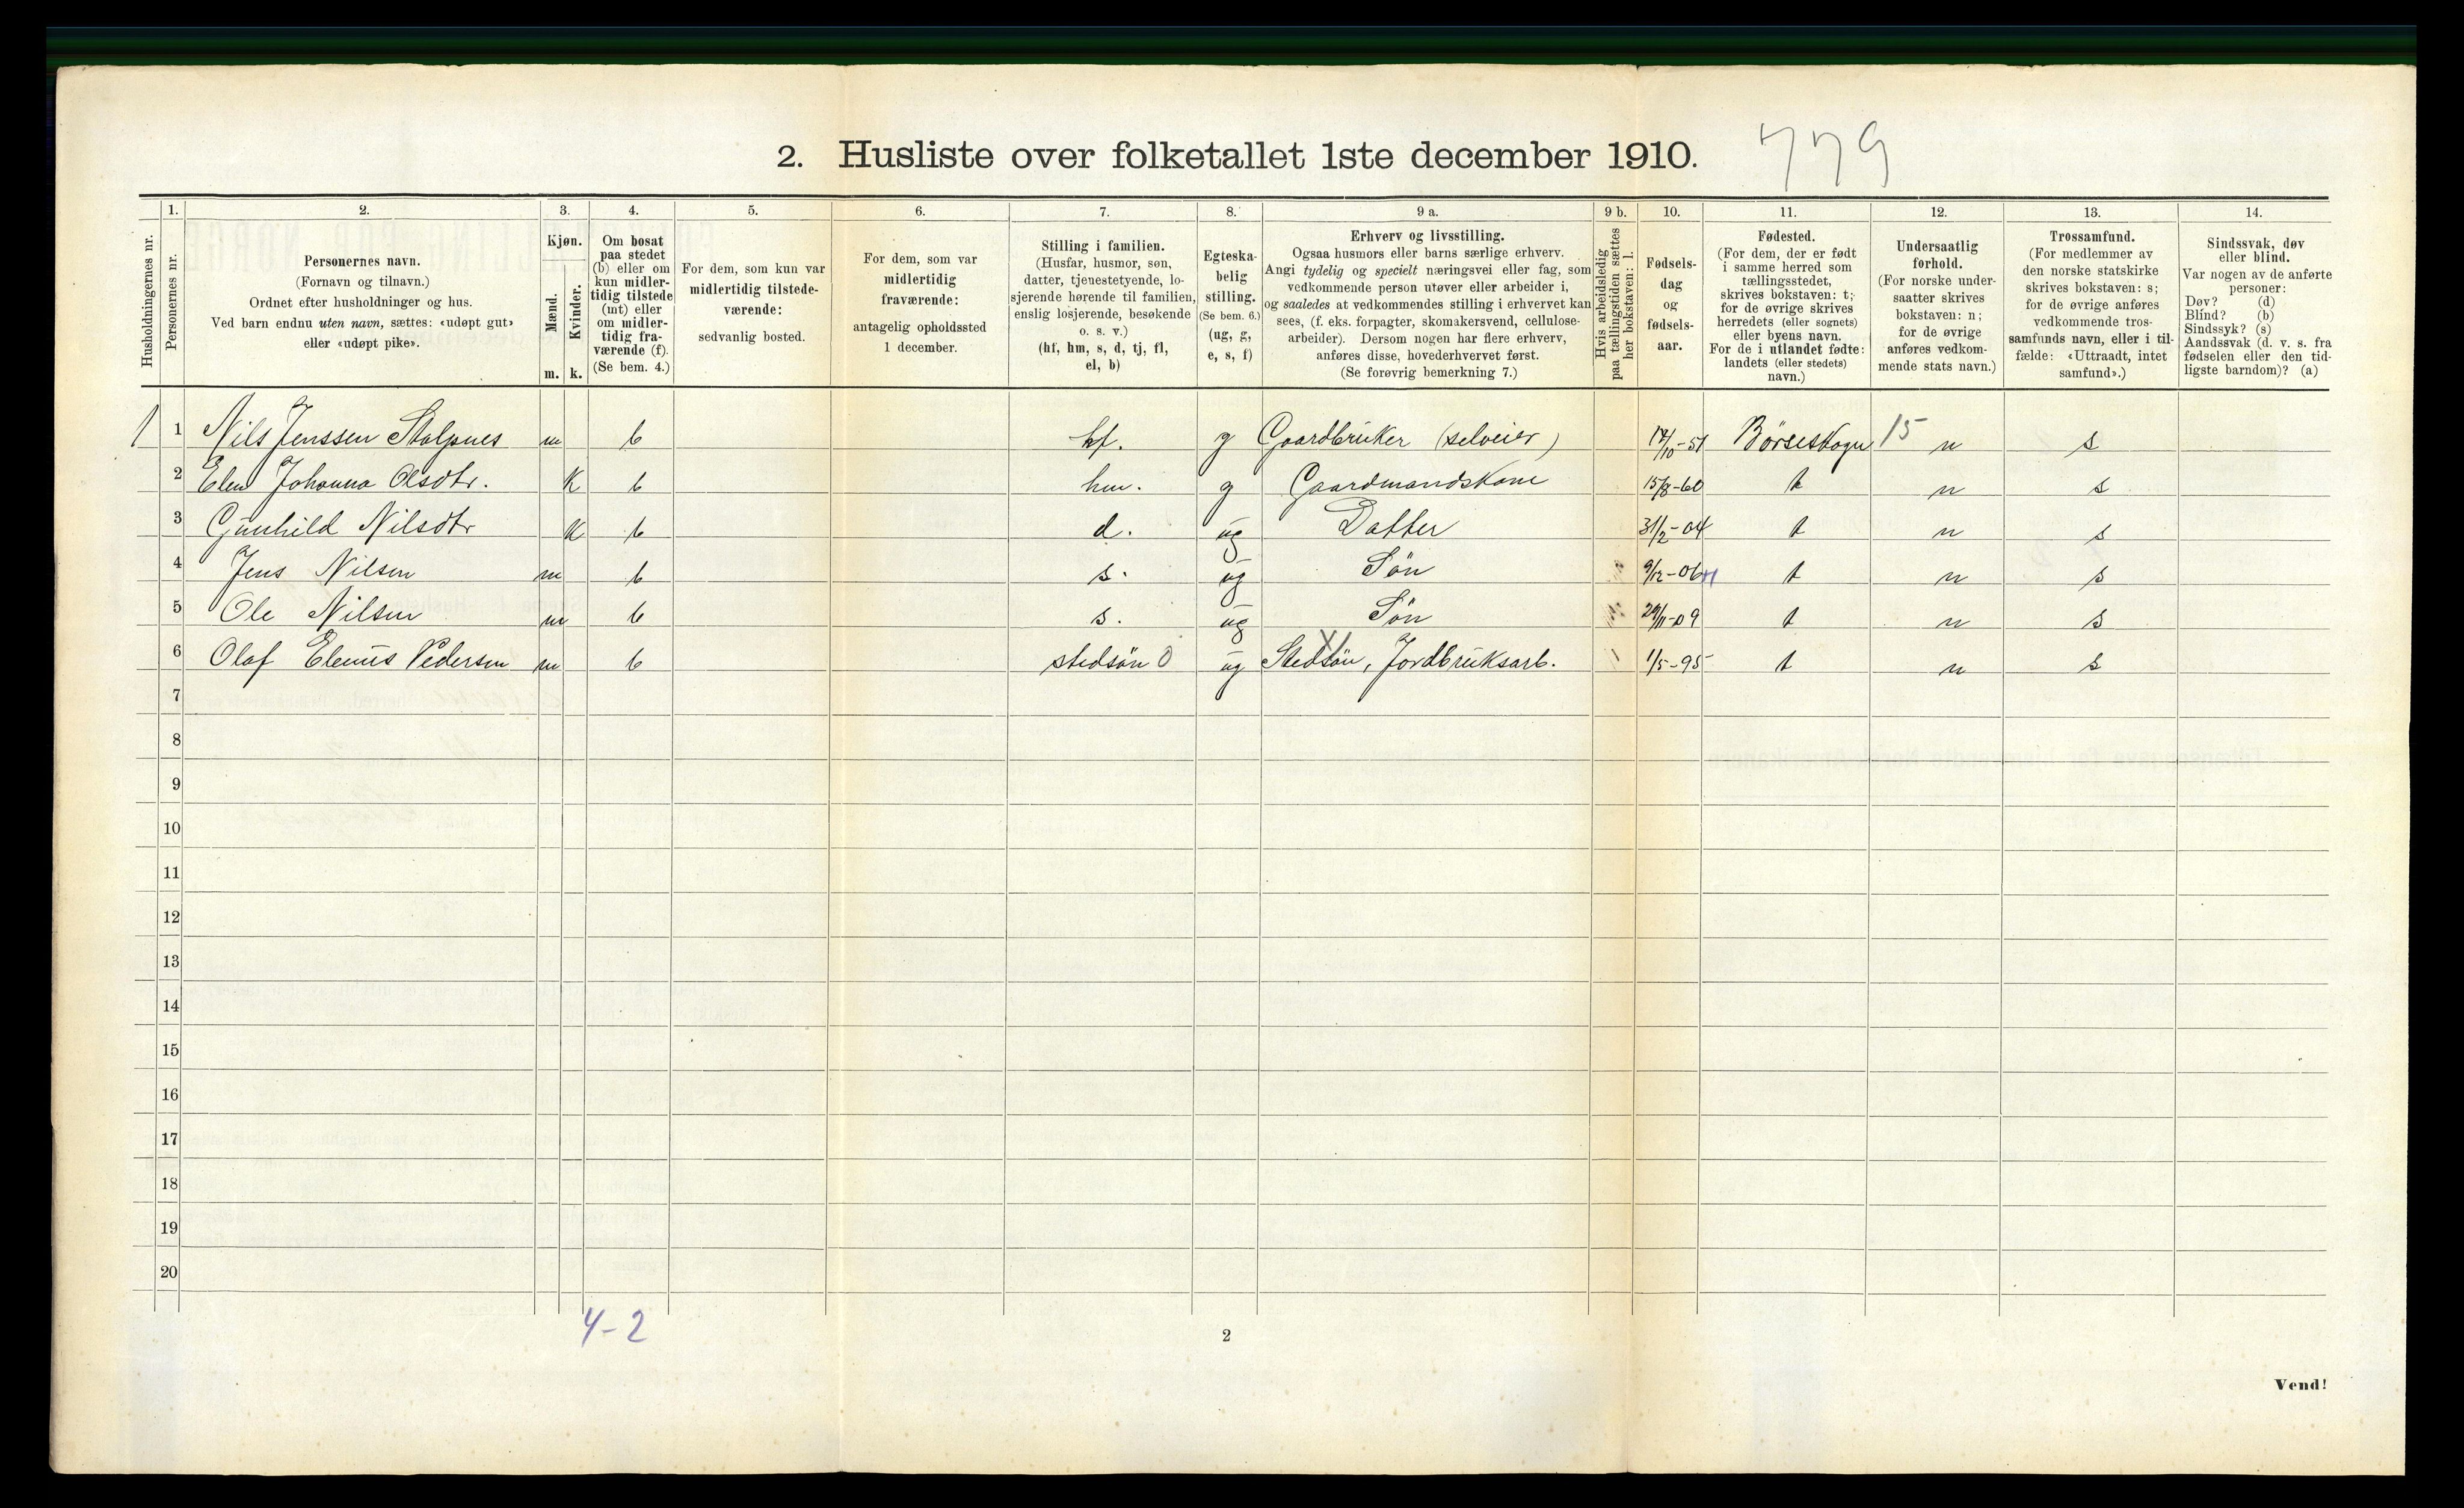 2. Husliste over folketallet 1ste december 1910. 779
Husholdningernes nr.
1.
Personernes nr.
2.
Personernes navn.
(Fornavn og tilnavn.)
Ordnet efter husholdninger og hus.
Ved barn endnu uten navn, sættes: «udøpt gut»
eller «udøpt pike».
3.
Kjøn.
Mænd.
Kvinder.
m. k.
4.
Om bosat
paa stedet
(b) eller om
kun midler-
tidig tilstede
(mt) eller
om midler-
tidig fra-
værende (f).
(Se bem. 4.)
5.
For dem, som kun var
midlertidig tilstede-
værende:
sedvanlig bosted.
6.
For dem, som var
midlertidig
fraværende:
antagelig opholdssted
1 december.
7.
Stilling i familien.
(Husfar, husmor, søn,
datter, tjenestetyende, lo-
sjerende hørende til familien,
enslig losjerende, besøkende
o. s. v.)
(hf, hm, s, d, tj, fl,
el, b)
8.
Egteska-
belig
stilling.
(Se bem. 6.)
(ug, g,
e, s, f)
9 a.
Erhverv og livsstilling.
Ogsaa husmors eller barns særlige erhverv.
Angi tydelig og specielt næringsvei eller fag, som
vedkommende person utøver eller arbeider i,
og saaledes at vedkommendes stilling i erhvervet kan
sees, (f. eks. forpagter, skomakersvend, cellulose-
arbeider). Dersom nogen har flere erhverv,
anføres disse, hovederhvervet først.
(Se forøvrig bemerkning 7.)
9 b.
Hvis arbeidsledig
paa tællingstiden sættes
her bokstaven: l.
10.
Fødsels-
dag
og
fødsels-
aar.
11.
Fødested.
(For dem, der er født
i samme herred som
tællingsstedet,
skrives bokstaven: t;
for de øvrige skrives
herredets (eller sognets)
eller byens navn.
For de i utlandet fødte:
landets (eller stedets)
navn.)
12.
Undersaatlig
forhold.
(For norske under-
saatter skrives
bokstaven: n;
for de øvrige
anføres vedkom-
mende stats navn.)
13.
Trossamfund.
(For medlemmer av
den norske statskirke
skrives bokstaven: s;
for de øvrige anføres
vedkommende tros-
samfunds navn, eller i til-
fælde: «Uttraadt, intet
samfund».)
14.
Sindssvak, døv
eller blind.
Var nogen av de anførte
personer:
Døv? (d)
Blind? (b)
Sindssyk? (s)
Aandssvak (d. v. s. fra
fødselen eller den tid-
ligste barndom)? (a)
1 1 Nils Jenssen Stolpnes m b hf. g Gaardbruker (selveier) Børseskogn 15 n s
2 Elen Johanna Olsdtr. K b hm. g Gaardmandskone 15/8-60 t n s
3 Gunhild Nilsdtr K b d. ug Datter 31/2-04 t n s
4 Jens Nilsen m b s. ug Søn 9/12-06 t n s
5 Ole Nilsen m b s. ug Søn 29/11-09 t n s
6 Olaf Elenus Pedersen m b stedsøn O ug Stedsøn, Jordbruksarb. 1/5-95 t n s
7
8
9
10
11
12
13
14
15
16
17
18
19
20
4-2
2
Vend!